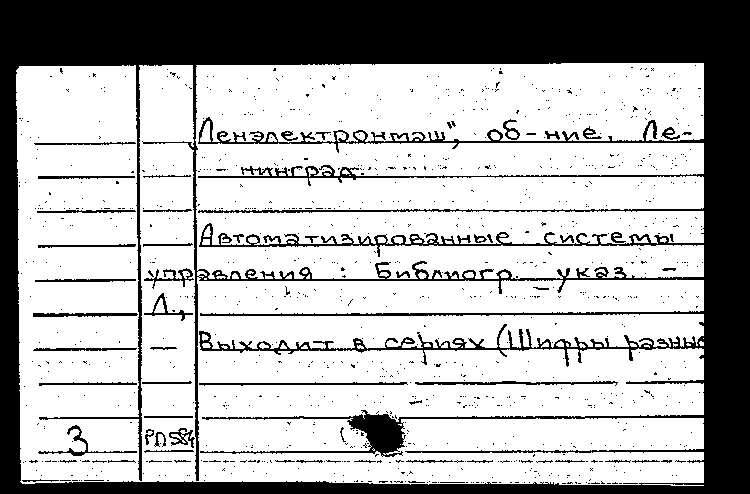 Ленэлектронмаш", об-ние. Ле-
- нинград.
Автоматизированные системы
управления : Библиогр. указ. -
Л.,
— Выходит в сериях (Шифры разные
3 РП584